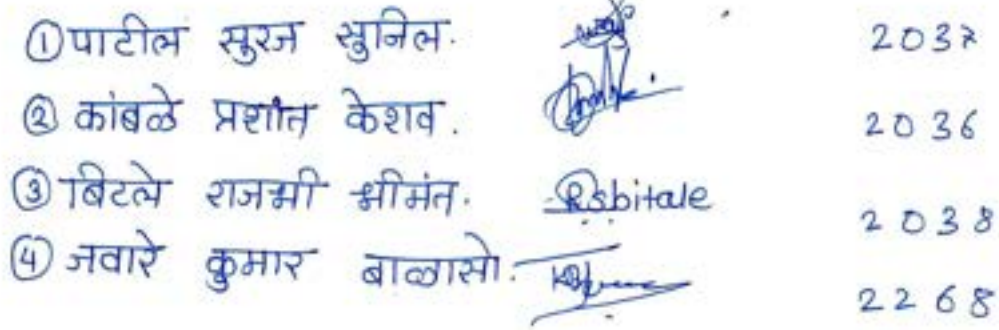 ① पाटील सुरज सुनिल. 2037
② कांबळे प्रशांत केशव. 2036
③ बिटले राजश्री श्रीमंत. Rsbitale 2038
④ जवारे कुमार बाळासो. 2268